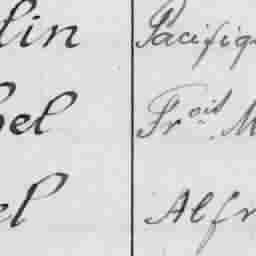 lin Pacifiq
bel Froit M
el Alfr